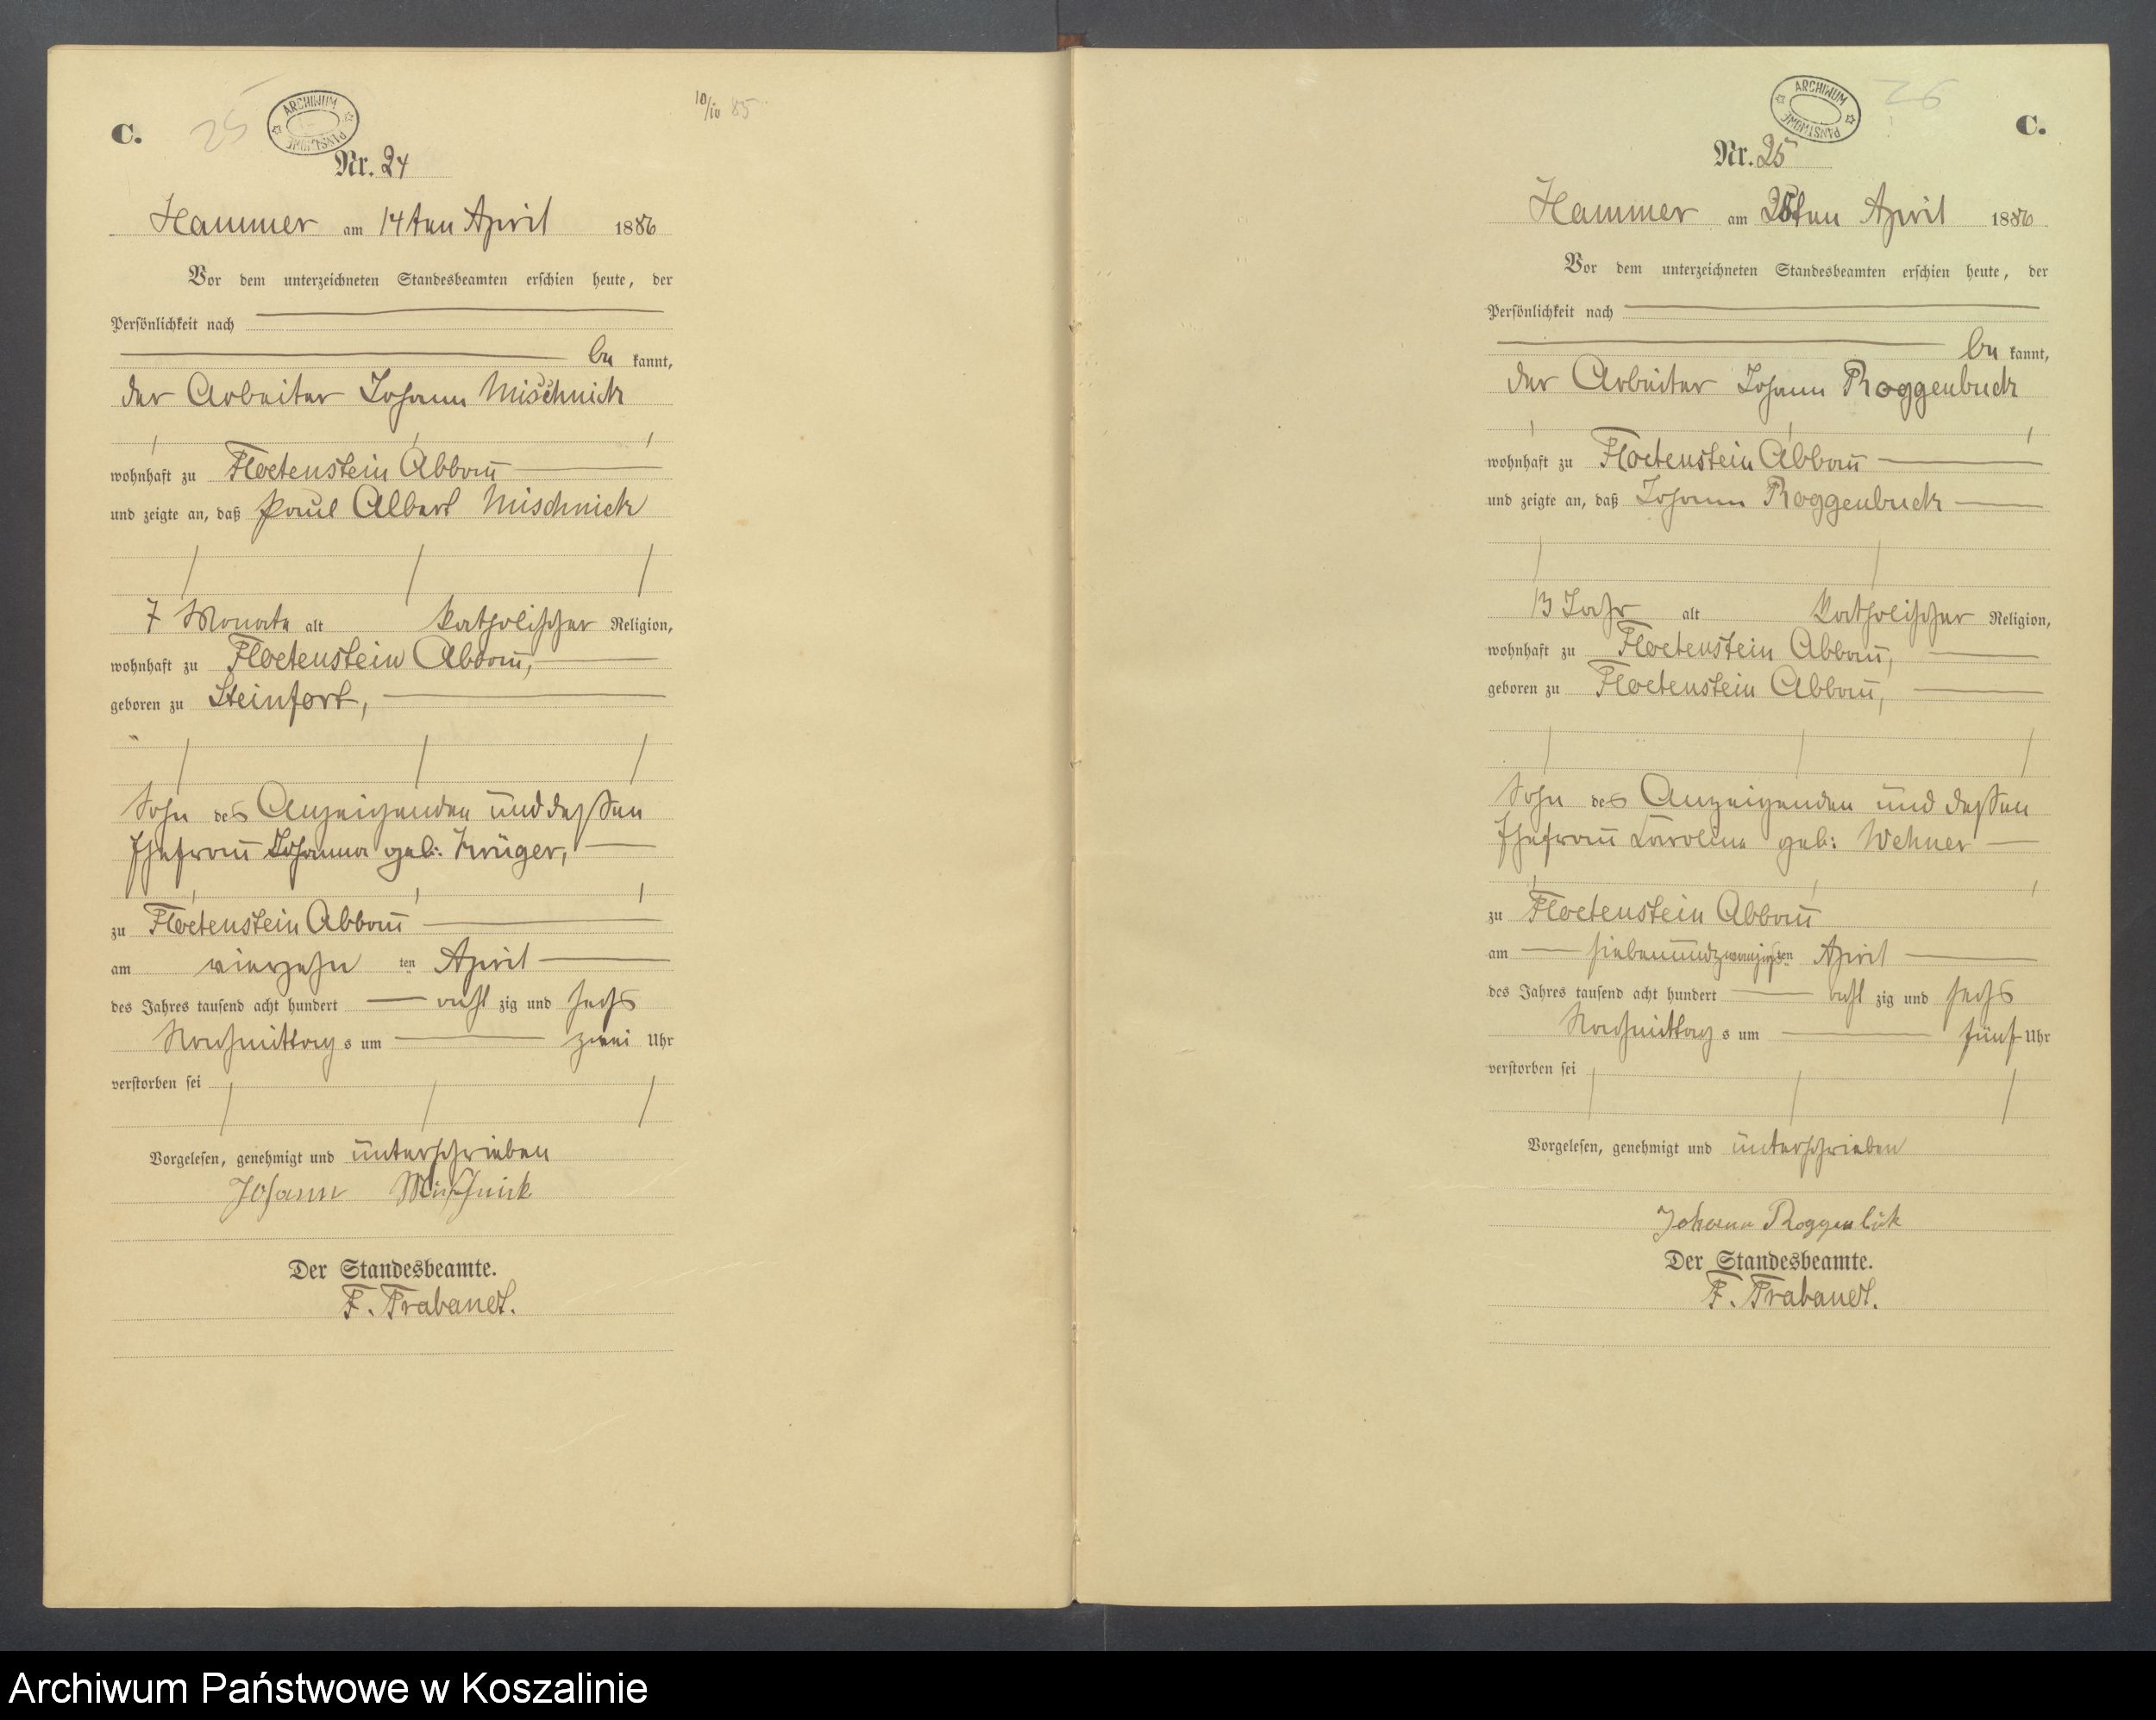 C.
25
ARCHIWUM PAŃSTWOWE
10/IV 85
Nr. 24
Hammer am 14ten April 1886
Vor dem unterzeichneten Standesbeamten erschien heute, der
Persönlichkeit nach
be kannt,
der Arbeiter Johann Mischnick
wohnhaft zu Floetenstein Abbau
und zeigte an, daß Paul Albert Mischnick
7 Monate alt katholischer Religion,
wohnhaft zu Floetenstein Abbau,
geboren zu Steinfort,
Sohn des Anzeigenden und dessen
Ehefrau Johanna geb: Krüger,
zu Floetenstein Abbau
am vierzehn ten April
des Jahres tausend acht hundert acht zig und sechs
Nachmittag s um zwei Uhr
verstorben sei
Vorgelesen, genehmigt und unterschrieben
Johann Mischnick
Der Standesbeamte.
F. Trabandt.
ARCHIWUM PAŃSTWOWE
26
C.
Nr. 25
Hammer am ten April 1886
Vor dem unterzeichneten Standesbeamten erschien heute, der
Persönlichkeit nach
be kannt,
der Arbeiter Johann Roggenbuck
wohnhaft zu Floetenstein Abbau
und zeigte an, daß Johann Roggenbuck
13 Jahr alt katholischer Religion,
wohnhaft zu Floetenstein Abbau,
geboren zu Floetenstein Abbau,
Sohn des Anzeigenden und dessen
Ehefrau Caroline geb: Wehner
zu Floetenstein Abbau
am siebenundzwanzigsten April
des Jahres tausend acht hundert acht zig und sechs
Nachmittag s um fünf Uhr
verstorben sei
Vorgelesen, genehmigt und unterschrieben
Johann Roggenbuk
Der Standesbeamte.
F. Trabandt.
Archiwum Państwowe w Koszalinie